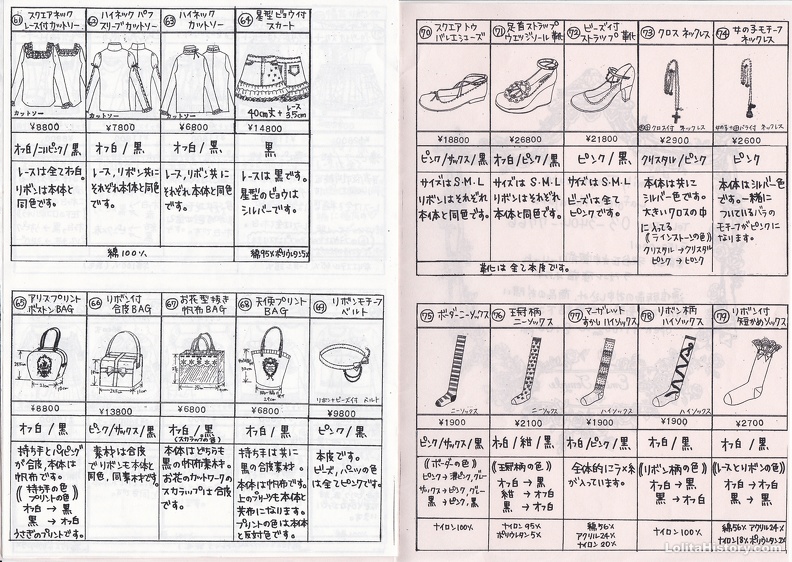 61 スクエアネック
レース付カットソー
カットソー
¥8800
オフ白/こいピンク/黒
レースは全てオフ白。
リボンは本体と
同色です。
62 ハイネック パフ
スリーブカットソー
カットソー
¥7800
オフ白 / 黒
レース、リボン共に
それぞれ本体と同色
です。
63 ハイネック
カットソー
カットソー
¥6800
オフ白 / 黒
レース、リボン共に
それぞれ本体と同色
です。
綿100%
64 星型ビョウ付
スカート
40cm丈+レース3.5cm
¥14800
黒
レースは黒です。
星型のビョウは
シルバーです。
綿95%ポリウレタン5%
65 アリスプリント
ボストンBAG
¥8800
オフ白 / 黒
持ち手とパイピング
が合皮、本体は
帆布です。
《持ち手の色
プリントの色》
オフ白 → 黒
黒 → オフ白
うさぎのプリントです。
66 リボン付
合皮BAG
¥13800
ピンク/サックス/黒
素材は合皮
でリボンも本体と
同色、同素材です。
67 お花型抜き
帆布BAG
¥6800
オフ白 / 黒
(スカラップの色)
本体はどちらも
黒の帆布素材。
お花のカットワークの
スカラップは合皮
です。
68 天使プリント
BAG
¥6800
オフ白 / 黒
持ち手は共に
黒の合皮素材。
本体は帆布です。
上のプリーツも本体と
共布になります。
プリントの色は本体
と反対色です。
69 リボンモチーフ
ベルト
リボンビーズ付 ベルト
¥9800
ピンク / 黒
本皮です。
ビーズ、パーツの色
は全てピンクです。
70 スクエアトウ
バレエシューズ
¥18800
ピンク/サックス/黒
サイズはS・M・L
リボンはそれぞれ
本体と同色です。
71 足首ストラップ
ウェッジソール靴
¥26800
オフ白/ピンク/黒
サイズはS・M・L
リボンはそれぞれ
本体と同色です。
72 ビーズ付
ストラップ靴
¥21800
ピンク / 黒
サイズはS・M・L
ビーズは全て
ピンクです。
靴は全て本皮です。
73 クロス ネックレス
クロス付 ネックレス
¥2900
クリスタル/ピンク
本体は共に
シルバー色です。
大きいクロスの中
に入ってる
《ラインストーンの色》
クリスタル→クリスタル
ピンク→ピンク
74 女の子モチーフ
ネックレス
ネックレス
¥2600
ピンク
本体はシルバー色
です。一緒に
ついているバラの
モチーフがピンクに
なります。
75 ボーダーニーソックス
ニーソックス
¥1900
ピンク/サックス/黒
《ボーダーの色》
ピンク→濃ピンク,グレー
サックス→ピンク,グレー
黒→ピンク,黒
ナイロン100%
76 王冠柄
ニーソックス
ニーソックス
¥2100
オフ白/紺/黒
《王冠柄の色》
オフ白 → 黒
紺 → オフ白
黒 → オフ白
ナイロン95%
ポリウレタン5%
77 マーガレット
すかしハイソックス
ハイソックス
¥1900
オフ白/ピンク/黒
全体的にラメ糸
が入っています。
綿56%
アクリル24%
ナイロン20%
78 リボン柄
ハイソックス
ハイソックス
¥1900
オフ白 / 黒
《リボン柄の色》
オフ白 → 黒
黒 → オフ白
ナイロン100%
79 リボン付
短かめソックス
¥2700
オフ白 / 黒
《レースとリボンの色》
オフ白 → オフ白
黒 → 黒
綿56% アクリル24%
ナイロン18%ポリウレタン2%
LolitaHistory.com